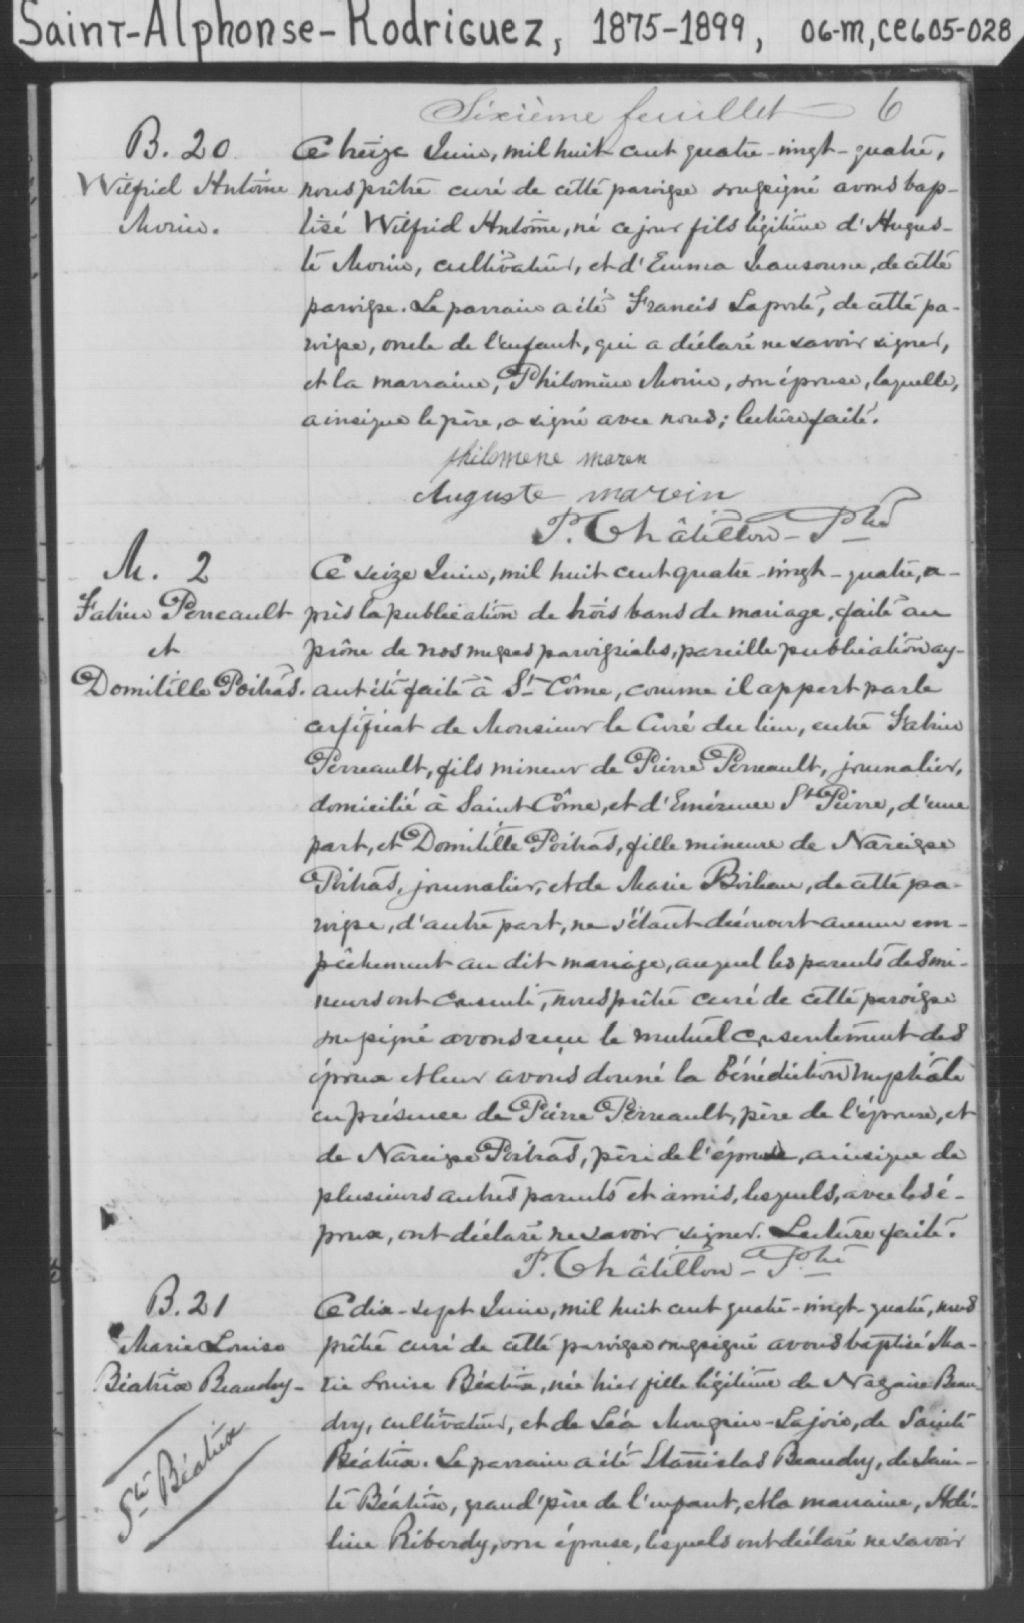 Saint-Alphonse-Rodriguez, 1875-1899, 06-M, CE605-028
Sixième feuillet 6
B. 20
Wilfrid Antoine
Morin.
Ce treize Juin, mil huit cent quatre-vingt-quatre,
nous prêtre curé de cette paroisse soussigné avons bap-
tisé Wilfrid Antoine, né ce jour fils légitime d'Augus-
te Morin, cultivateur, et d'Emma , de cette
paroisse. Le parrain a été Francis Laporte, de cette pa-
roisse, oncle de l'enfant, qui a déclaré ne savoir signer,
et la marraine, Philomène Morin, son épouse, laquelle,
ainsi que le père, a signé avec nous; lecture faite.
philomene moren
Auguste morein
P. Châtillon - Ptre
M. 2
Fabien Perreault
et
Domitille Poitras.
Ce seize Juin, mil huit cent quatre-vingt-quatre, a-
près la publication de trois bans de mariage, faite au
prône de nos messes paroissiales, pareille publication ay-
ant été faite à St Côme, comme il appert par le
certificat de Monsieur le Curé du lieu, entre Fabien
Perreault, fils mineur de Pierre Perreault, journalier,
domicilié à Saint Côme, et d'Emérence St Pierre, d'une
part, et Domitille Poitras, fille mineure de Narcisse
Poitras, journalier, et de Marie Boileau, de cette pa-
roisse, d'autre part, ne s'étant découvert aucun em-
pêchement au dit mariage, auquel les parents des mi-
neurs ont consenti, nous prêtre curé de cette paroisse
soussigné avons reçu le mutuel consentement des
époux et leur avons donné la bénédiction nuptiale
en présence de Pierre Perreault, père de l'épouse, et
de Narcisse Poitras, père de l'épouse, ainsi que de
plusieurs autres parents et amis, lesquels, avec les é-
poux, ont déclaré ne savoir signer. Lecture faite.
P. Châtillon - Ptre
B. 21
Marie Louise
Béatrix Beaudry-
Ste Béatrix
Ce dix-sept Juin, mil huit cent quatre-vingt-quatre, nous
prêtre curé de cette paroisse soussigné avons baptisé Ma-
rie Louise Béatrix, née hier fille légitime de Nazaire Beau-
dry, cultivateur, et de Léa -Lajoie, de Sainte
Béatrix. Le parrain a été Stanislas Beaudry, de Sain-
te Béatrix, grand'père de l'enfant, et la marraine, Adé-
line Riberdy, son épouse, lesquels ont déclaré ne savoir